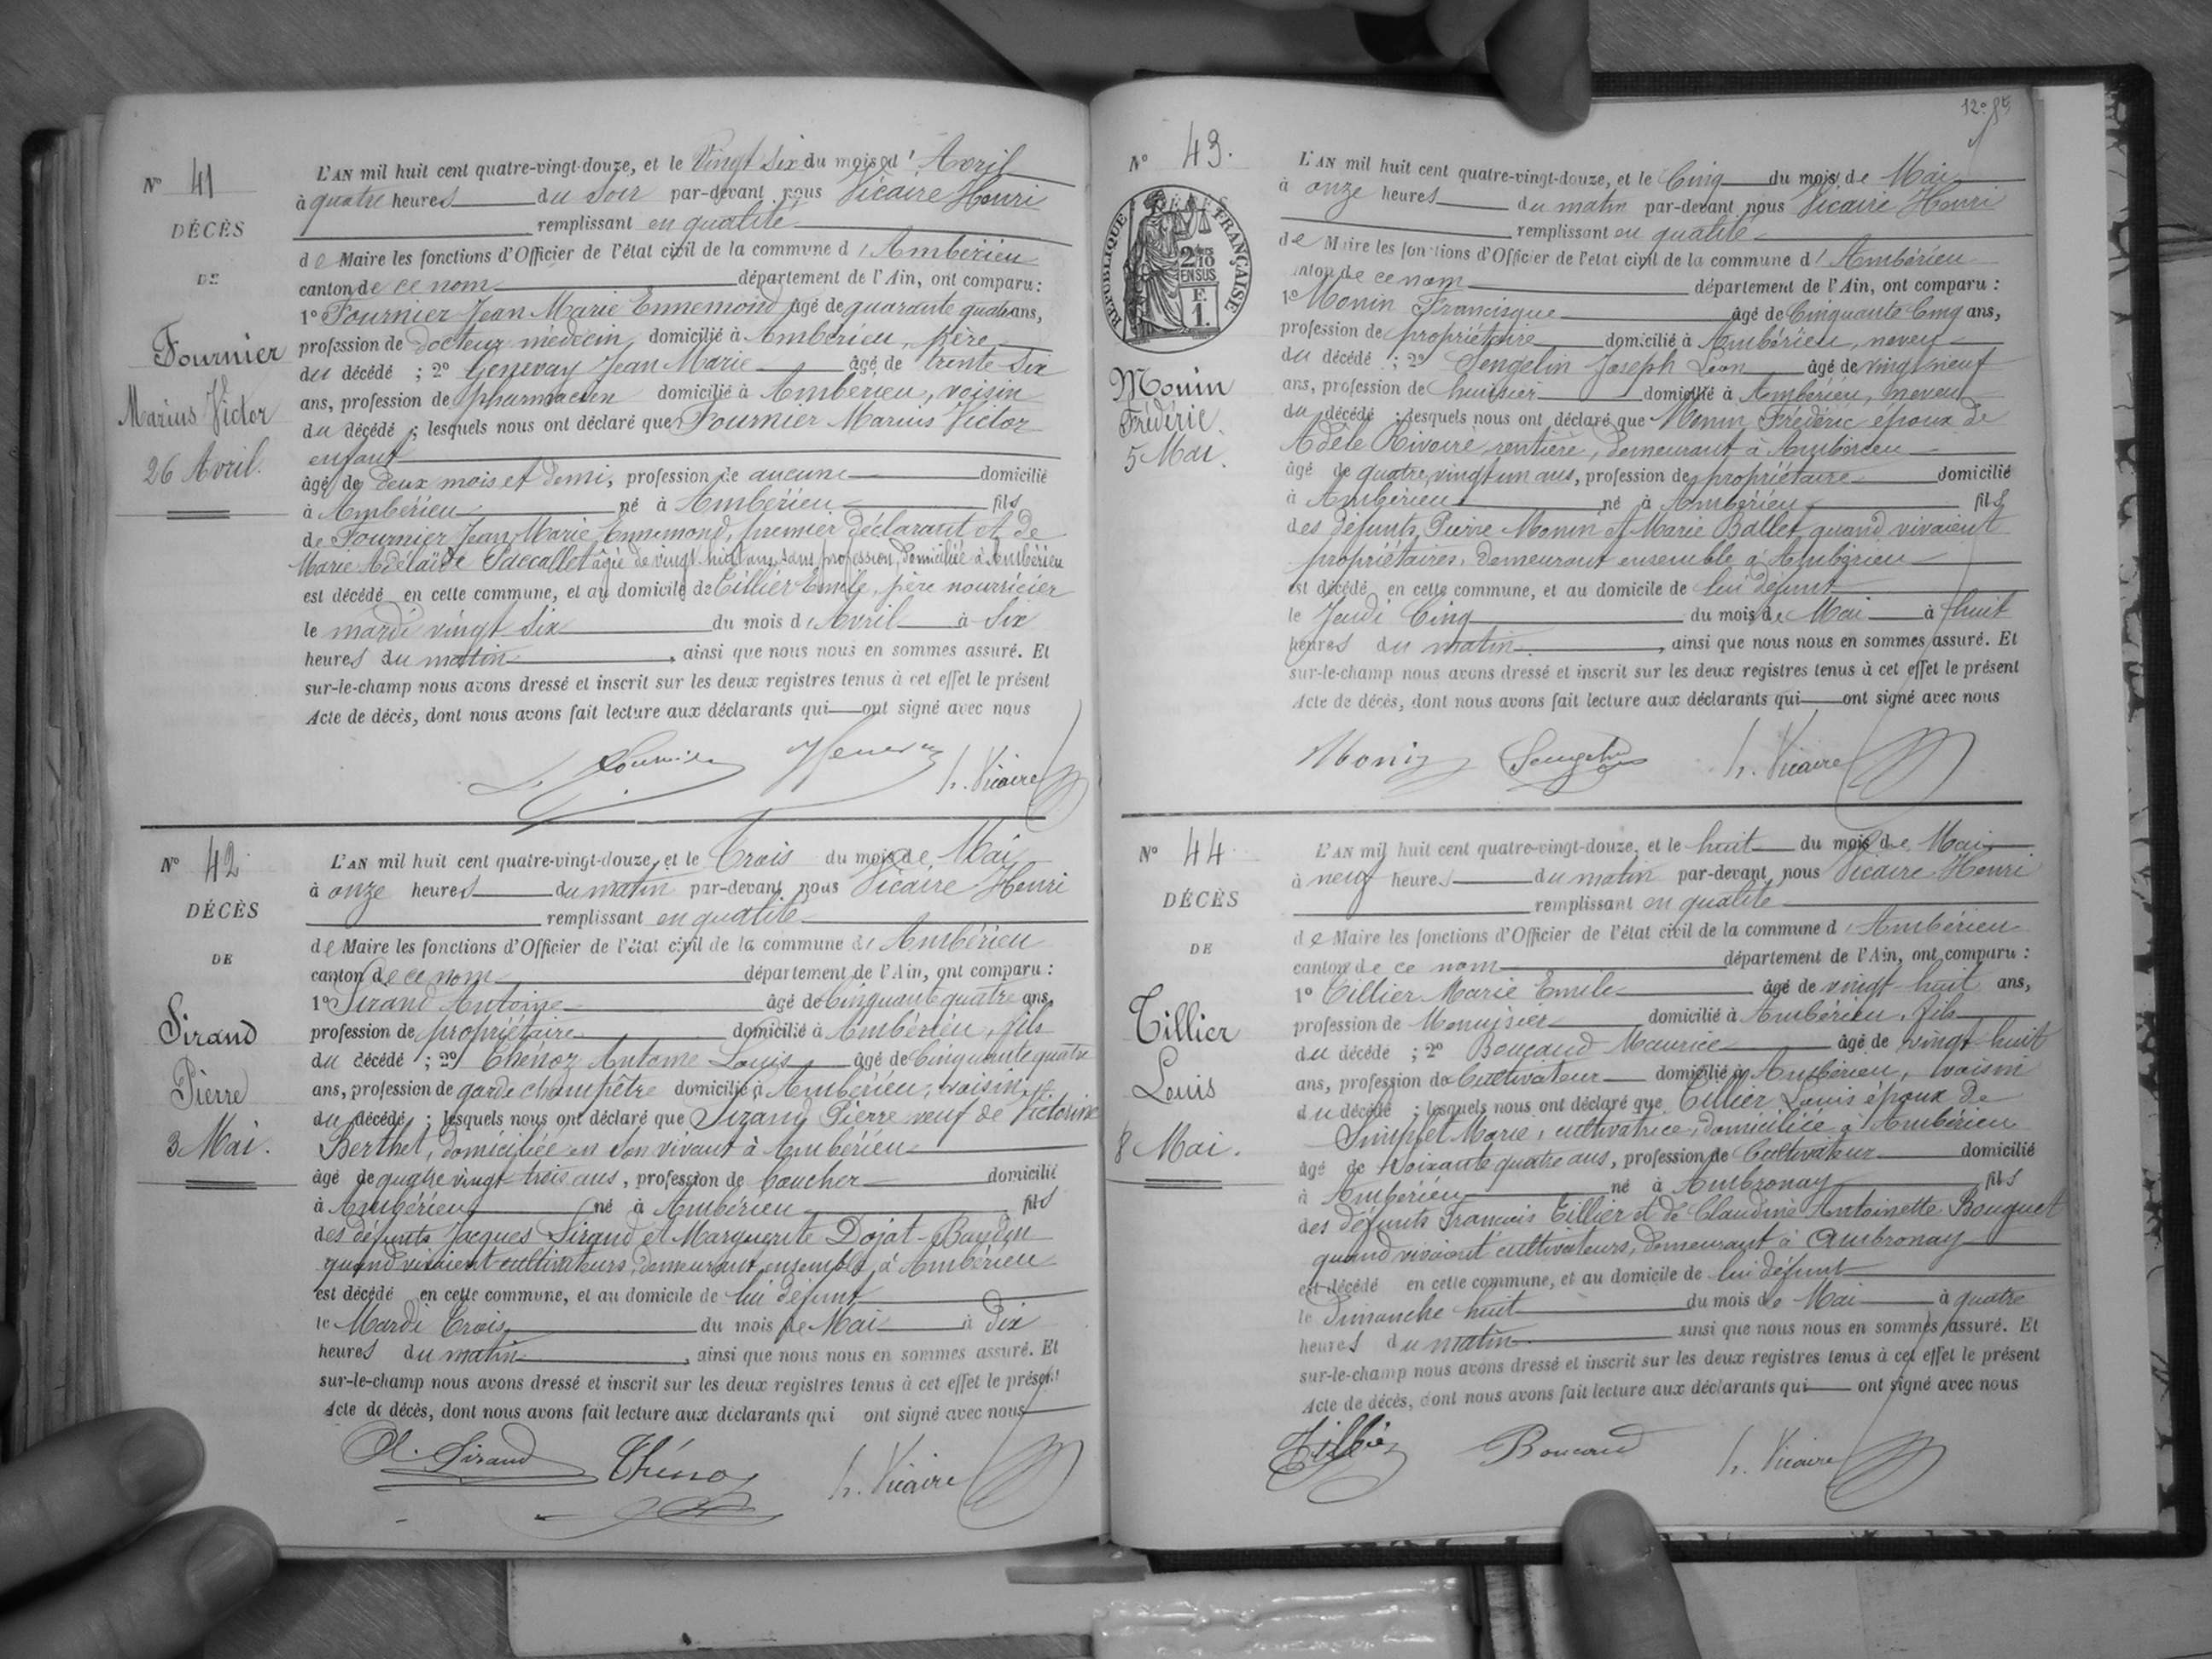 N° 41
DÉCÈS
DE
Fournier
Marius Victor
26 Avril.
L'AN mil huit cent quatre-vingt-douze, et le Vingt Six du mois d' Avril
à quatre heures du Soir par-devant nous Vicaire Henri
remplissant en qualité
de Maire les fonctions d'Officier de l'état civil de la commune d'Ambérieu
canton de ce nom département de l'Ain, ont comparu :
1° Fournier Jean Marie Ennemond âgé de quarante quatre ans,
profession de docteur médecin domicilié à Ambérieu, père
du décédé ; 2° Genevay Jean Marie âgé de trente Six
ans, profession de pharmacien domicilié à Ambérieu, voisin
du décédé ; lesquels nous ont déclaré que Fournier Marius Victor
enfant
âgé de deux mois et demi, profession de aucune domicilié
à Ambérieu né à Ambérieu fils
de Fournier Jean Marie Ennemond, premier déclarant et de
Marie Adélaïde âgée de vingt huit ans, sans profession, domiciliée à Ambérieu
est décédé en cette commune, et au domicile de Tillier Emile, père nourricier
le mardi vingt Six du mois d'Avril à Six
heures du matin, ainsi que nous nous en sommes assuré. Et
sur-le-champ nous avons dressé et inscrit sur les deux registres tenus à cet effet le présent
Acte de décès, dont nous avons fait lecture aux déclarants qui ont signé avec nous
Fournier Genevay h. Vicaire
N° 42
DÉCÈS
DE
Sirand
Pierre
3 Mai.
L'AN mil huit cent quatre-vingt-douze, et le Trois du mois de Mai
à onze heures du matin par-devant nous Vicaire Henri
remplissant en qualité
de Maire les fonctions d'Officier de l'état civil de la commune d'Ambérieu
canton de ce nom département de l'Ain, ont comparu :
1° Sirand Antoine âgé de Cinquante quatre ans,
profession de propriétaire domicilié à Ambérieu, fils
du décédé ; 2° Thénoz Antoine Louis âgé de Cinquante quatre
ans, profession de garde champêtre domicilié à Ambérieu, voisin
du décédé ; lesquels nous ont déclaré que Sirand Pierre veuf de Victorine
Berthet, domiciliée en son vivant à Ambérieu
âgé de quatre vingt trois ans, profession de boucher domicilié
à Ambérieu né à Ambérieu fils
des défunts Jacques Sirand et Marguerite Dojat-Baudin
quand vivaient cultivateurs, demeurant ensemble à Ambérieu
est décédé en cette commune, et au domicile de lui défunt
le Mardi Trois du mois de Mai à Dix
heures du matin, ainsi que nous nous en sommes assuré. Et
sur-le-champ nous avons dressé et inscrit sur les deux registres tenus à cet effet le présent
Acte de décès, dont nous avons fait lecture aux déclarants qui ont signé avec nous
A. Sirand Thénoz h. Vicaire
N° 43.
RÉPUBLIQUE FRANÇAISE
EN SUS
Monin
Frédéric.
5 Mai.
L'AN mil huit cent quatre-vingt-douze, et le Cinq du mois de Mai
à onze heures du matin par-devant nous Vicaire Henri
remplissant en qualité
de Maire les fonctions d'Officier de l'état civil de la commune d'Ambérieu
canton de ce nom département de l'Ain, ont comparu :
1° Monin Francisque âgé de Cinquante Cinq ans,
profession de propriétaire domicilié à Ambérieu, neveu
du décédé ; 2° Sengelin Joseph Léon âgé de vingt neuf
ans, profession de huissier domicilié à Ambérieu, neveu
du décédé ; lesquels nous ont déclaré que Monin Frédéric époux de
Adèle Rivoire, rentière, demeurant à Ambérieu
âgé de quatre vingt un ans, profession de propriétaire domicilié
à Ambérieu né à Ambérieu fils
des défunts Pierre Monin et Marie Ballet quand vivaient
propriétaires, demeurant ensemble à Ambérieu
est décédé en cette commune, et au domicile de lui défunt
le Jeudi Cinq du mois de Mai à huit
heures du matin, ainsi que nous nous en sommes assuré. Et
sur-le-champ nous avons dressé et inscrit sur les deux registres tenus à cet effet le présent
Acte de décès, dont nous avons fait lecture aux déclarants qui ont signé avec nous
Monin Sengelin h. Vicaire
N° 44
DÉCÈS
DE
Tillier
Louis
8 Mai.
L'AN mil huit cent quatre-vingt-douze, et le huit du mois de Mai
à neuf heures du matin par-devant nous Vicaire Henri
remplissant en qualité
de Maire les fonctions d'Officier de l'état civil de la commune d'Ambérieu
canton de ce nom département de l'Ain, ont comparu :
1° Tillier Marie Emile âgé de vingt-huit ans,
profession de Menuisier domicilié à Ambérieu, fils
du décédé ; 2° Boucaud Maurice âgé de vingt-huit
ans, profession de Cultivateur domicilié à Ambérieu, voisin
du décédé ; lesquels nous ont déclaré que Tillier Louis époux de
Marie, cultivatrice, domiciliée à Ambérieu
âgé de soixante quatre ans, profession de Cultivateur domicilié
à Ambérieu né à Ambronay fils
des défunts François Tillier et de Claudine Antoinette Bouquet
quand vivaient cultivateurs, demeurant à Ambronay
est décédé en cette commune, et au domicile de lui défunt
le Dimanche huit du mois de Mai à quatre
heures du matin ainsi que nous nous en sommes assuré. Et
sur-le-champ nous avons dressé et inscrit sur les deux registres tenus à cet effet le présent
Acte de décès, dont nous avons fait lecture aux déclarants qui ont signé avec nous
Tillier Boucaud h. Vicaire